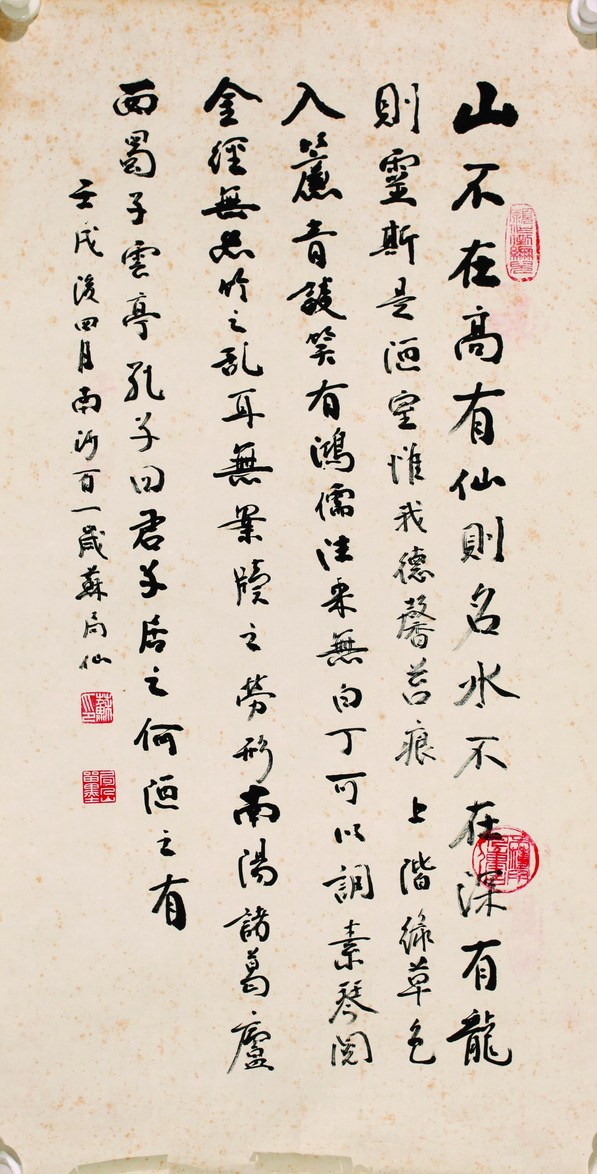 山不在高有仙則名水不在深有龍
則靈斯是陋室惟我德馨苔痕上階綠草色
入簾青談笑有鴻儒往来無白丁可以調素琴閱
金經無絲竹之乱耳無案牘之勞形南陽諸葛廬
西蜀子雲亭孔子曰君子居之何陋之有
壬戌後四月南沙百一歲蘇局仙